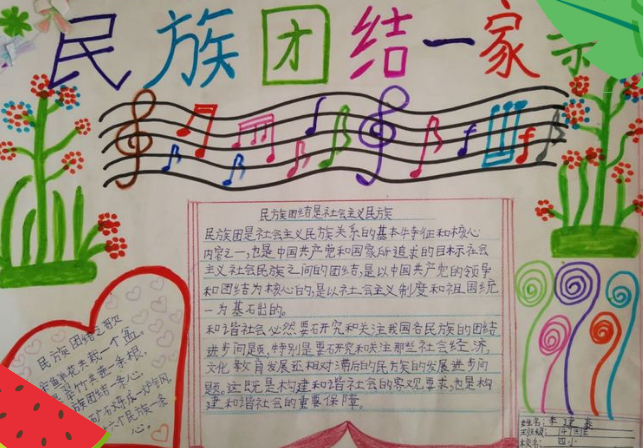 民族团结一家亲
民族团结是社会主义民族
民族团是社会主义民族关系的基本特征和核心
内容之一,也是中国共产党和国家所追求的目标示社会
主义社会民族之间的团结,是以中国共产党的领导
和团结为核心的,是以社会主义制度和祖国统
一为基石出的。
和谐社会必然要石开究和关注我国各民族的团结
进步问题,特别是要石开究和关注那些社会经济,
文化教育发展还相对滞后的民族的发展进步问
题,这既是构建和谐社会的客观要求,也是构
建和谐社会的重要保障。
民族团结之歌
花共栽一个盆,
民族团结一条心,
个民族一条
心。